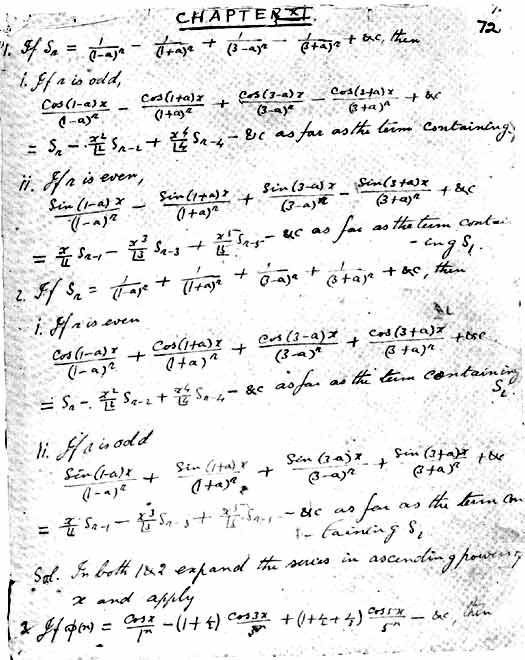 CHAPTER XI.
72
1. If Sₙ = 1/(1-a)ⁿ - 1/(1+a)ⁿ + 1/(3-a)ⁿ - 1/(3+a)ⁿ + &c, then
i. If n is odd,
Cos(1-a)x/(1-a)ⁿ - Cos(1+a)x/(1+a)ⁿ + Cos(3-a)x/(3-a)ⁿ - Cos(3+a)x/(3+a)ⁿ + &c
= Sₙ - x²/|2 Sₙ₋₂ + x⁴/|4 Sₙ₋₄ - &c as far as the term containing
ii. If n is even,
Sin(1-a)x/(1-a)ⁿ - Sin(1+a)x/(1+a)ⁿ + Sin(3-a)x/(3-a)ⁿ - Sin(3+a)x/(3+a)ⁿ + &c
= x/|1 Sₙ₋₁ - x³/|3 Sₙ₋₃ + x⁵/|5 Sₙ₋₅ - &c as far as the term contai-
-ing S₁.
2. If Sₙ = 1/(1-a)ⁿ + 1/(1+a)ⁿ + 1/(3-a)ⁿ + 1/(3+a)ⁿ + &c, then
i. If n is even
Cos(1-a)x/(1-a)ⁿ + Cos(1+a)x/(1+a)ⁿ + Cos(3-a)x/(3-a)ⁿ + Cos(3+a)x/(3+a)ⁿ + &c
= Sₙ - x²/|2 Sₙ₋₂ + x⁴/|4 Sₙ₋₄ - &c as far as the term containing
S₂
ii. If n is odd
Sin(1-a)x/(1-a)ⁿ + Sin(1+a)x/(1+a)ⁿ + Sin(3-a)x/(3-a)ⁿ + Sin(3+a)x/(3+a)ⁿ + &c
= x/|1 Sₙ₋₁ - x³/|3 Sₙ₋₃ + x⁵/|5 Sₙ₋₅ - &c as far as the term con
-taining S₁
Sol. In both 1 & 2 expand the series in ascending powers of
x and apply
3 If φ(n) = Cos x/1ⁿ - (1+⅓) Cos 3x/3ⁿ + (1+⅓+⅕) Cos 5x/5ⁿ - &c, then